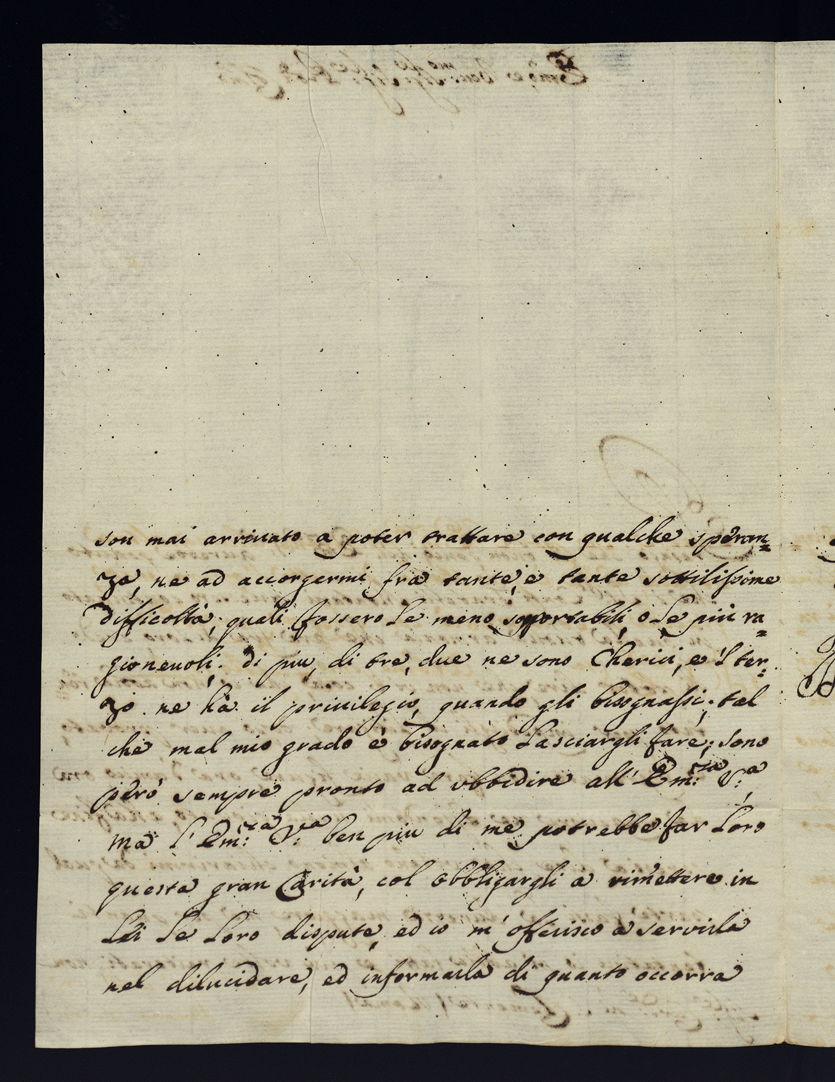 son mai arrivato a poter trattare con qualche speran=
za, ne ad accorgermi fra tante, e tante sottilissime
difficoltà, quali fossero le meno soportabili, o le più ra=
gionevoli. Di piu, di tre, due ne sono Cherici, e 'l ter=
zo ne hà il privilegio, quando gli bisognassi; tal
che mal mio grado è bisognato lasciargli fare; sono
però sempre pronto ad ubbidire all' Em:za V:a,
ma l' Em:za V:a ben piu di me potrebbe far loro
questa gran Carità, col obbligargli a rimettere in
Lei le loro dispute, ed io m' offerisco a servirla
nel dilucidare, ed informarla di quanto occorra